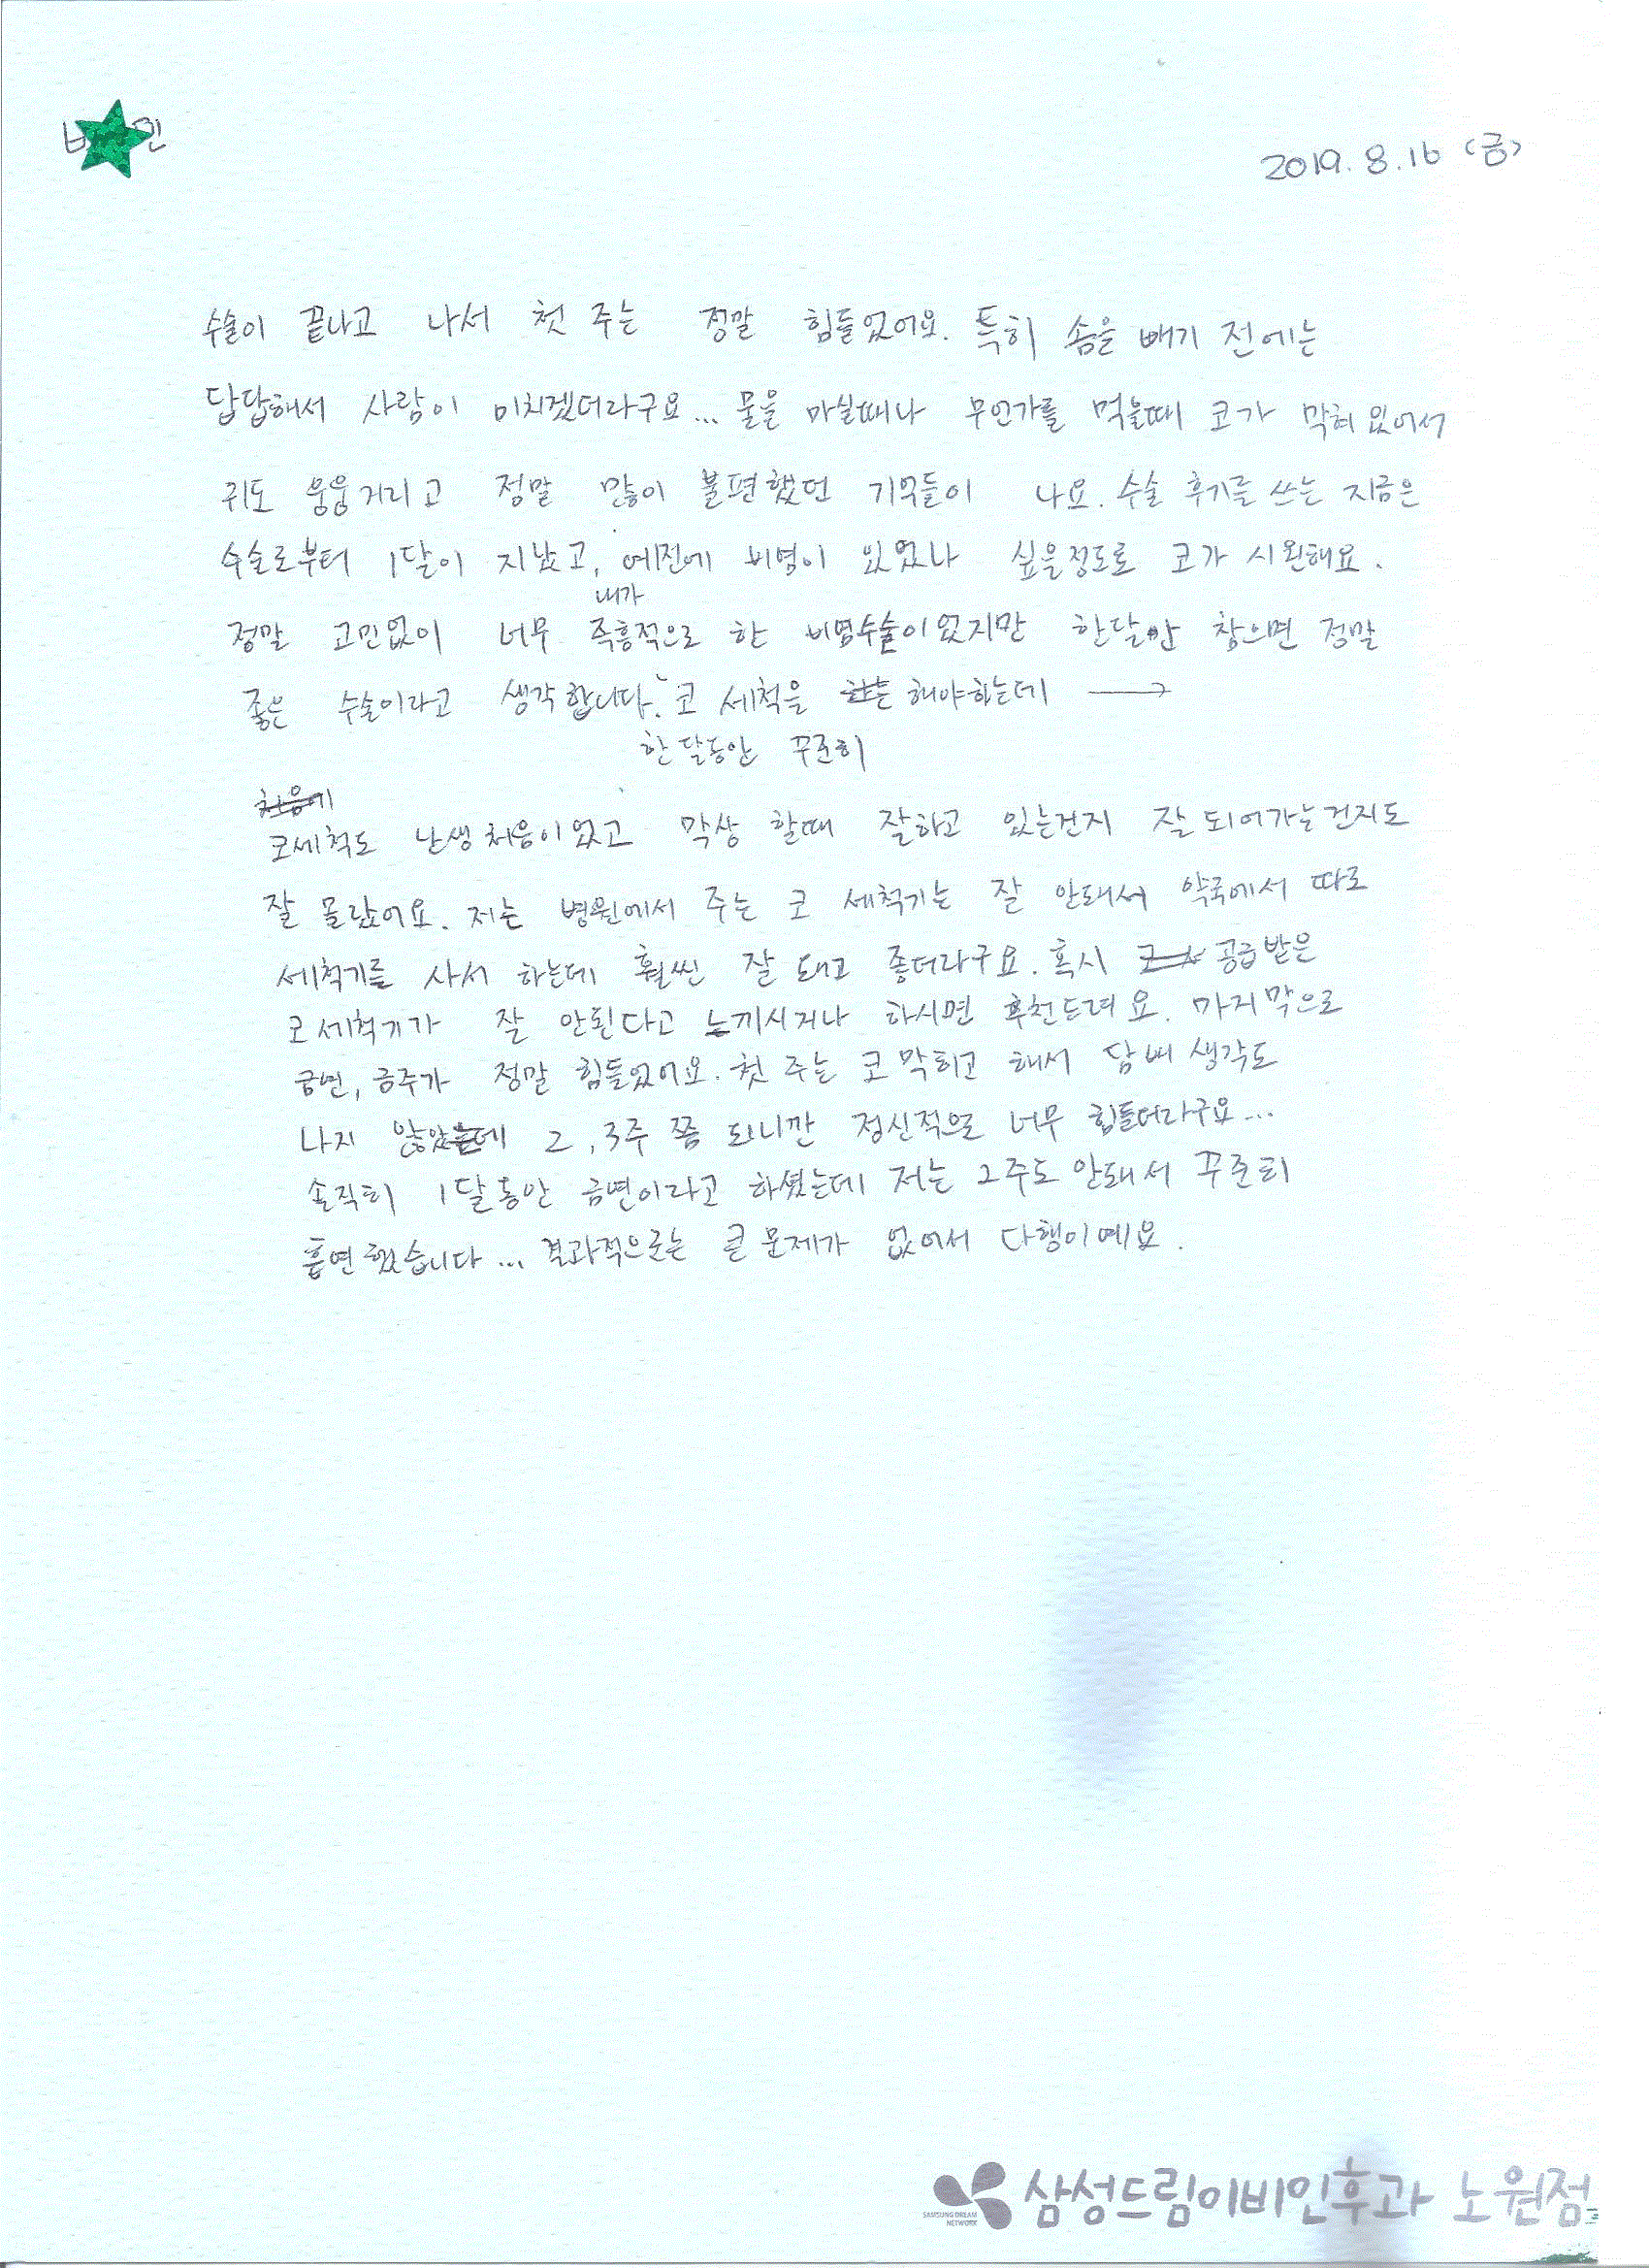 민
2019. 8. 16 (금)
수술이 끝나고 나서 첫 주는 정말 힘들었어요. 특히 솜을 빼기 전에는
답답해서 사람이 미치겠더라구요... 물을 마실때나 무언가를 먹을때 코가 막혀있어서
귀도 웅웅거리고 정말 많이 불편했던 기억들이 나요. 수술 후기를 쓰는 지금은
수술로부터 1달이 지났고, 예전에 비염이 있었나 싶을정도로 코가 시원해요.
내가
정말 고민없이 너무 즉흥적으로 한 비염수술이었지만 한달만 참으면 정말
좋은 수술이라고 생각합니다. 코 세척을 하는 해야하는데 →
한달동안 꾸준히
처음에
코세척도 난생처음이었고 막상 할때 잘하고 있는건지 잘 되어가는건지도
잘 몰랐어요. 저는 병원에서 주는 코 세척기는 잘 안돼서 약국에서 따로
세척기를 사서 하는데 훨씬 잘 돼고 좋더라구요. 혹시 공급받은
코세척기가 잘 안된다고 느끼시거나 하시면 추천드려요. 마지막으로
금연, 금주가 정말 힘들었어요. 첫 주는 코막히고 해서 담배 생각도
나지 않았는데 2, 3주 쯤 되니깐 정신적으로 너무 힘들더라구요...
솔직히 1달동안 금연이라고 하셨는데 저는 2주도 안돼서 꾸준히
흡연했습니다... 결과적으로는 큰 문제가 없어서 다행이예요.
SAMSUNG DREAM NETWORK 삼성드림이비인후과 노원점